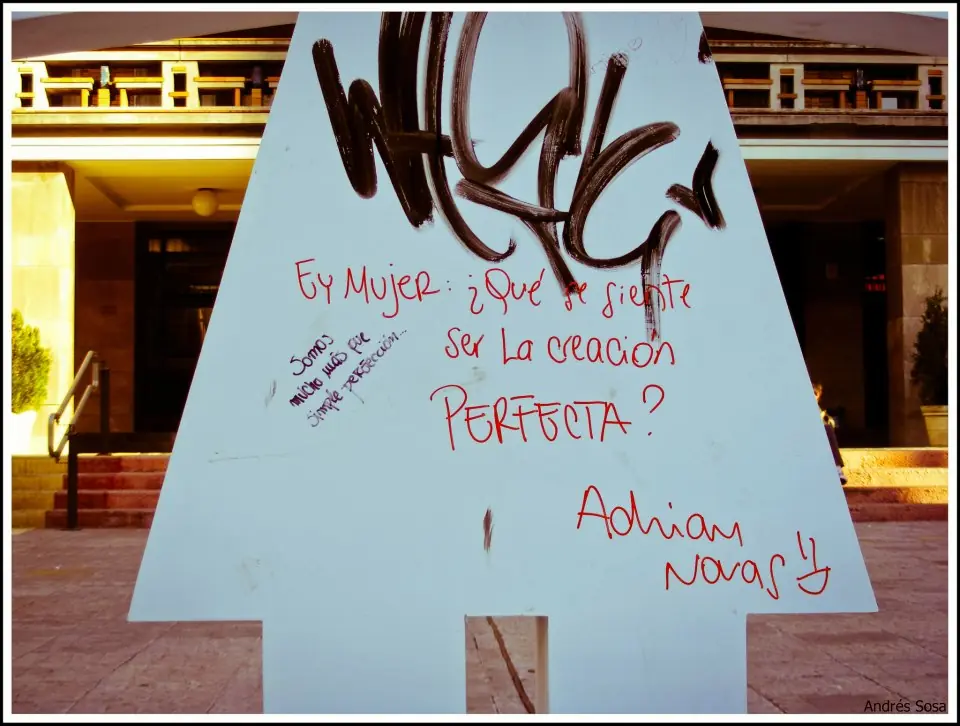 Ey Mujer: ¿Qué se siente
ser La creación
PERFECTA?
Somos
mucho más que
simple perfección...
Adrian
Novas
Andrés Sosa